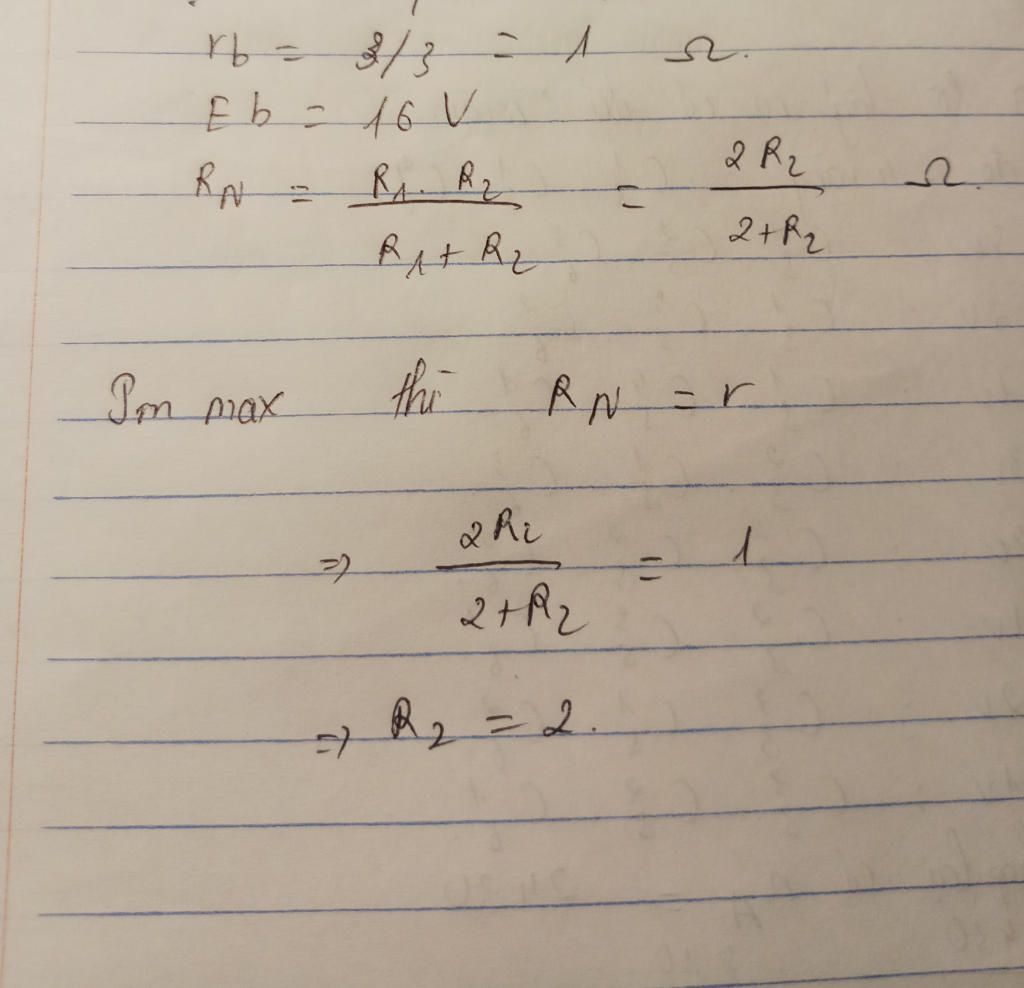 rb = 3/3 = 1 Ω.
Eb = 16 V
R_N = \frac{R_1 . R_2}{R_1 + R_2} = \frac{2 R_2}{2 + R_2} Ω.
Pm max thì R_N = r
=> \frac{2 R_2}{2 + R_2} = 1
=> R_2 = 2.